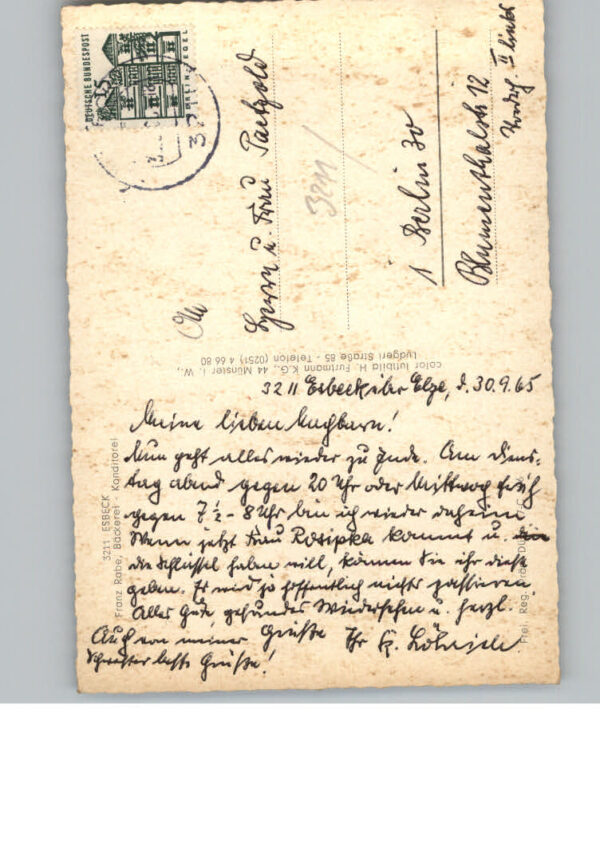 DEUTSCHE BUNDESPOST
15
BERLIN-TEGEL
An
Herrn u. Frau Paetzold
3211/
1 Berlin 30
Blumenthalstr 12
Vordh. II links
color luftbild H. Furtmann K.G., 44 Münster i. W.,
Ludgeri Straße 85 - Telefon (0251) 4 66 80
3211 ESBECK
Franz Rabe, Bäckerei - Konditorei
3211 Esbeck über Elze, d. 30.9.65
Meine lieben Nachbarn!
Nun geht alles wieder zu Ende. Am Diens-
tag abend gegen 20 Uhr oder Mittwoch früh
gegen 7 ½ - 8 Uhr bin ich wieder daheim
Wenn jetzt Frau Rosipka kommt u.
die Schlüssel haben will, können Sie ihr diese
geben. Es wird ja hoffentlich nichts passieren
Alles Gute, gesundes Wiedersehen u. herzl.
Grüße Ihr
Auch von meiner
Schwester beste Grüße!